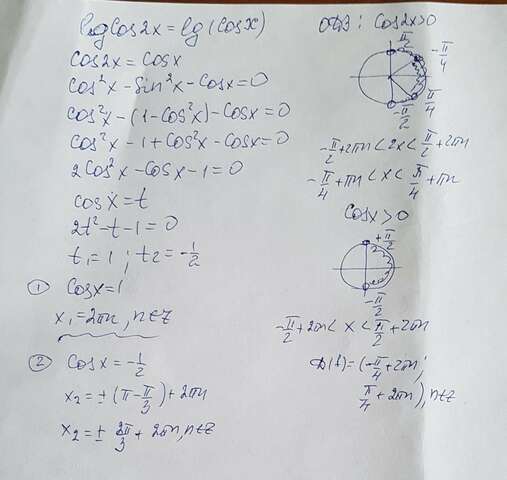 lg Cos2x = lg(Cosx)
Cos2x = Cosx
Cos²x - Sin²x - Cosx = 0
Cos²x - (1 - Cos²x) - Cosx = 0
Cos²x - 1 + Cos²x - Cosx = 0
2Cos²x - Cosx - 1 = 0
Cosx = t
2t² - t - 1 = 0
t₁ = 1 ; t₂ = -1/2
① Cosx = 1
x₁ = 2πn, n∈Z
② Cosx = -1/2
x₂ = ± (π - π/3) + 2πn
x₂ = ± 2π/3 + 2πn, n∈Z
ОДЗ: Cos2x > 0
π/2
-π/4
π/4
-π/2
-π/2 + 2πn < 2x < π/2 + 2πn
-π/4 + πn < x < π/4 + πn
Cosx > 0
+π/2
-π/2
-π/2 + 2πn < x < π/2 + 2πn
D(f) = (-π/4 + 2πn ;
π/4 + 2πn), n∈Z